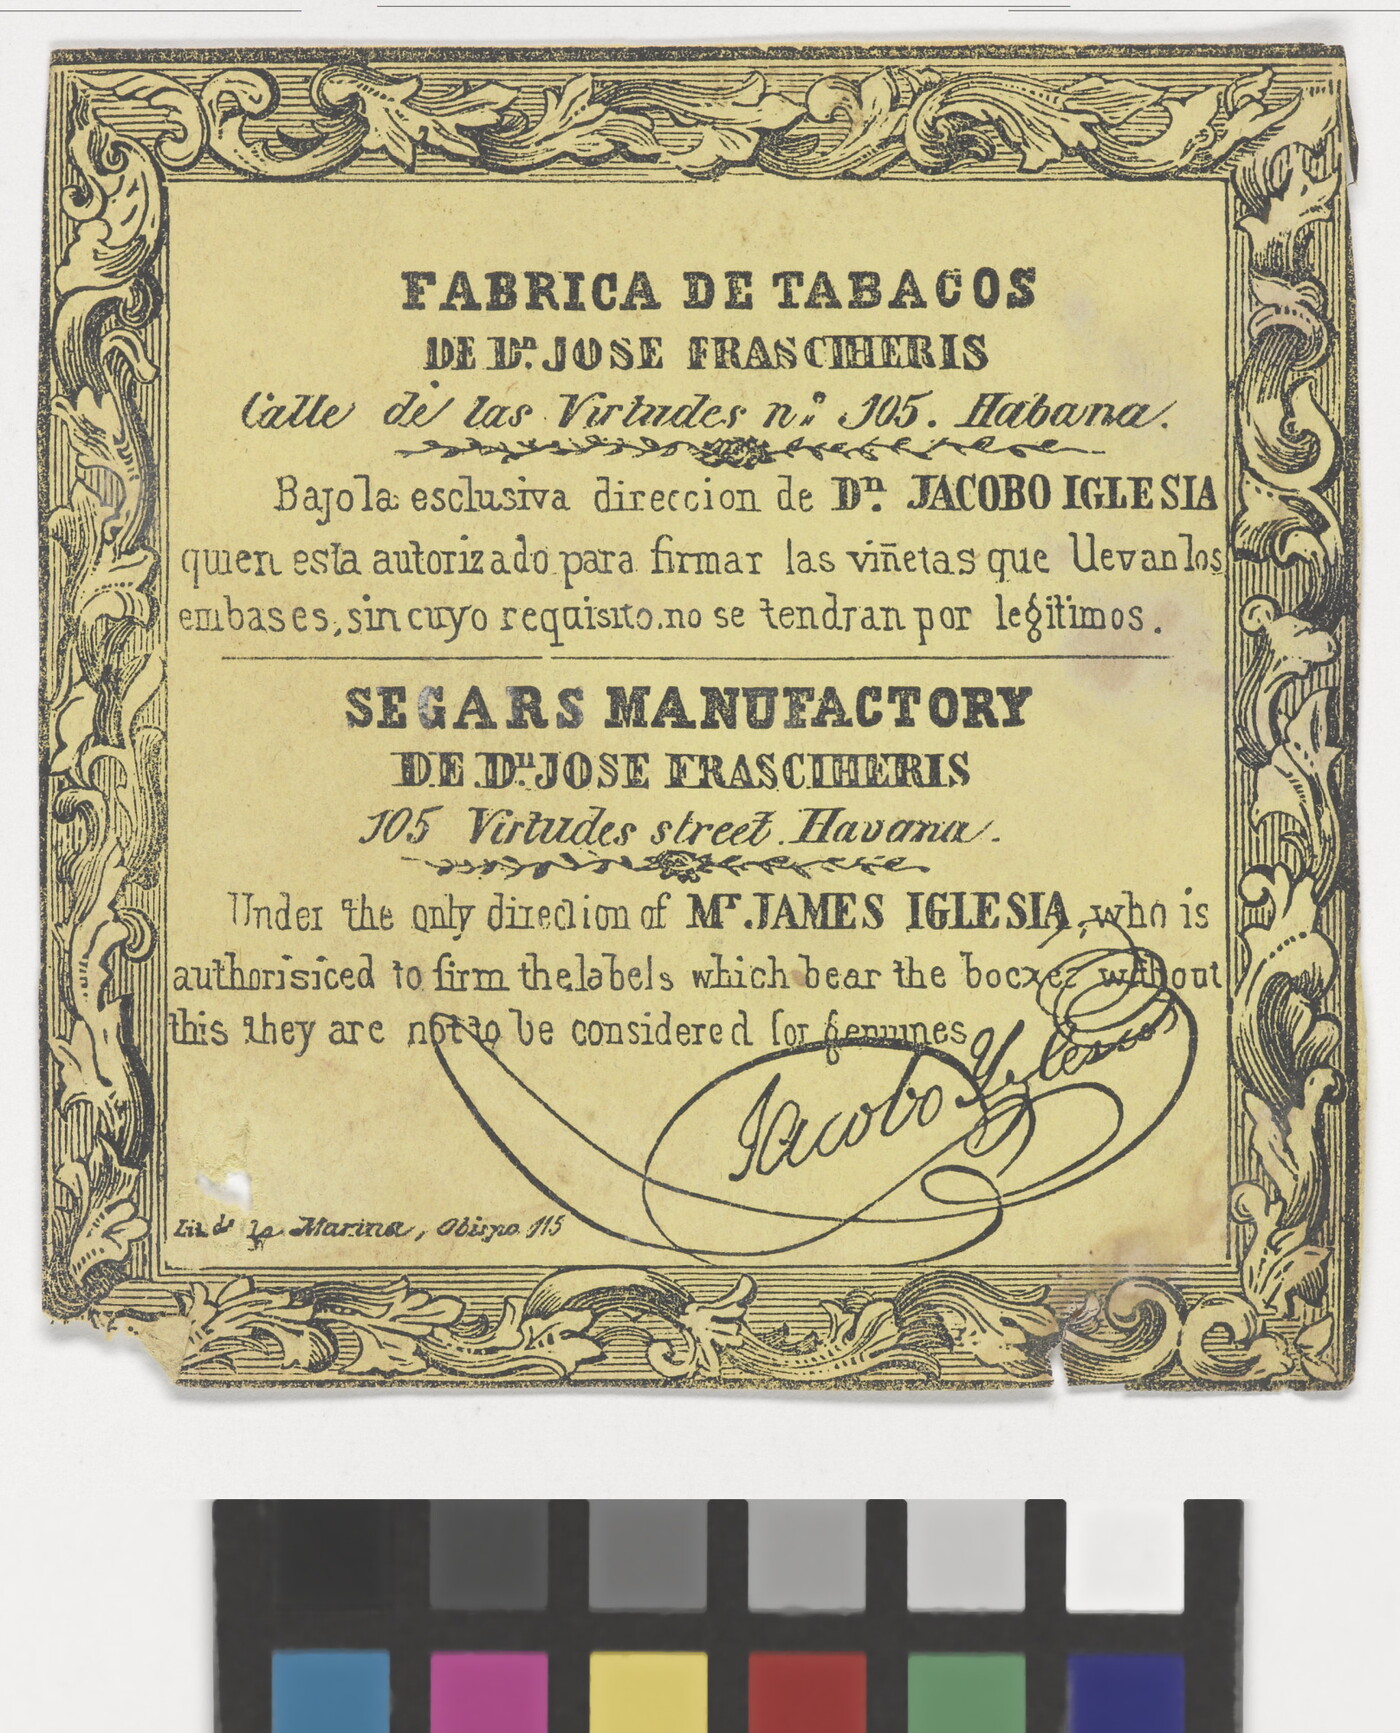 FABRICA DE TABACOS
DE Dn. JOSE FRASCIHERIS
Calle de las Virtudes n.o 105. Habana.
Bajo la esclusiva direccion de Dn. JACOBO IGLESIA
quien esta autorizado para firmar las viñetas que llevan los
embases, sin cuyo requisito no se tendran por legitimos.
SEGARS MANUFACTORY
DE Dn. JOSE FRASCIHERIS
105 Virtudes street. Havana.
Under the only direction of Mr. JAMES IGLESIA, who is
authorisiced to firm the labels which bear the bocxez without
this they are not to be considered for genuines
Jacobo Yglesias
Lit. de la Marina, Obispo 115